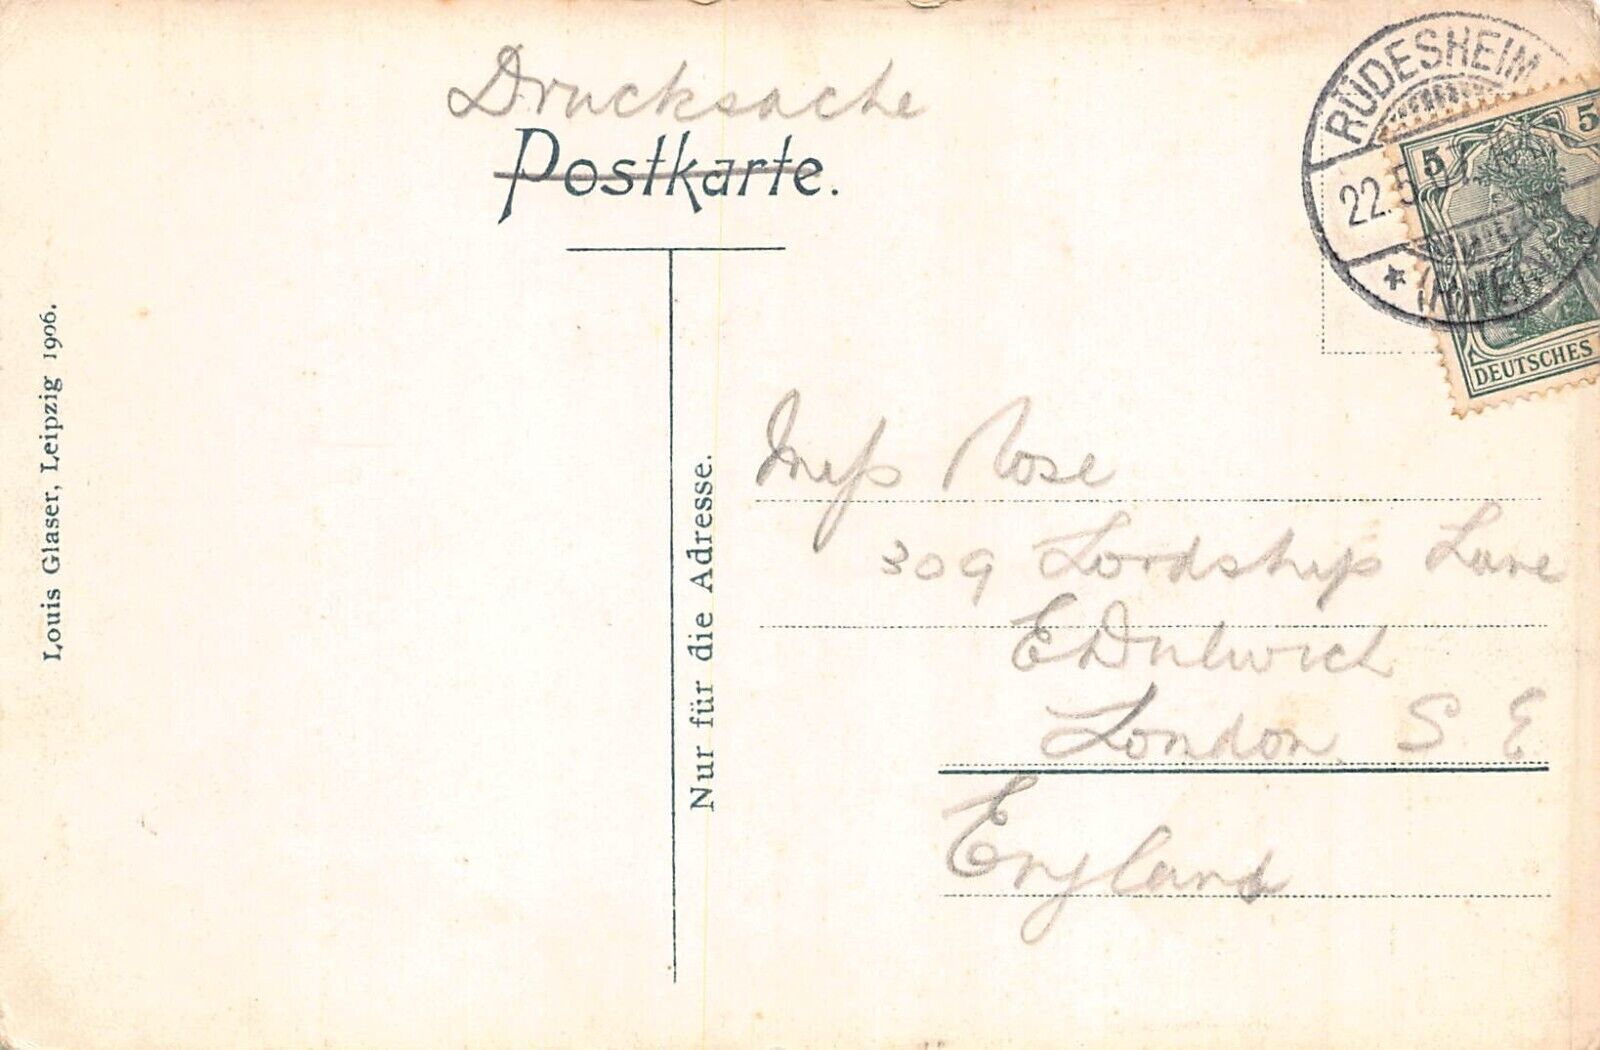 Drucksache
Postkarte.
RÜDESHEIM
22.5.
* (RHEIN)
5 5
DEUTSCHES
Miss Rose
309 Lordship Lane
E Dulwich
London S E
England
Nur für die Adresse.
Louis Glaser, Leipzig 1906.